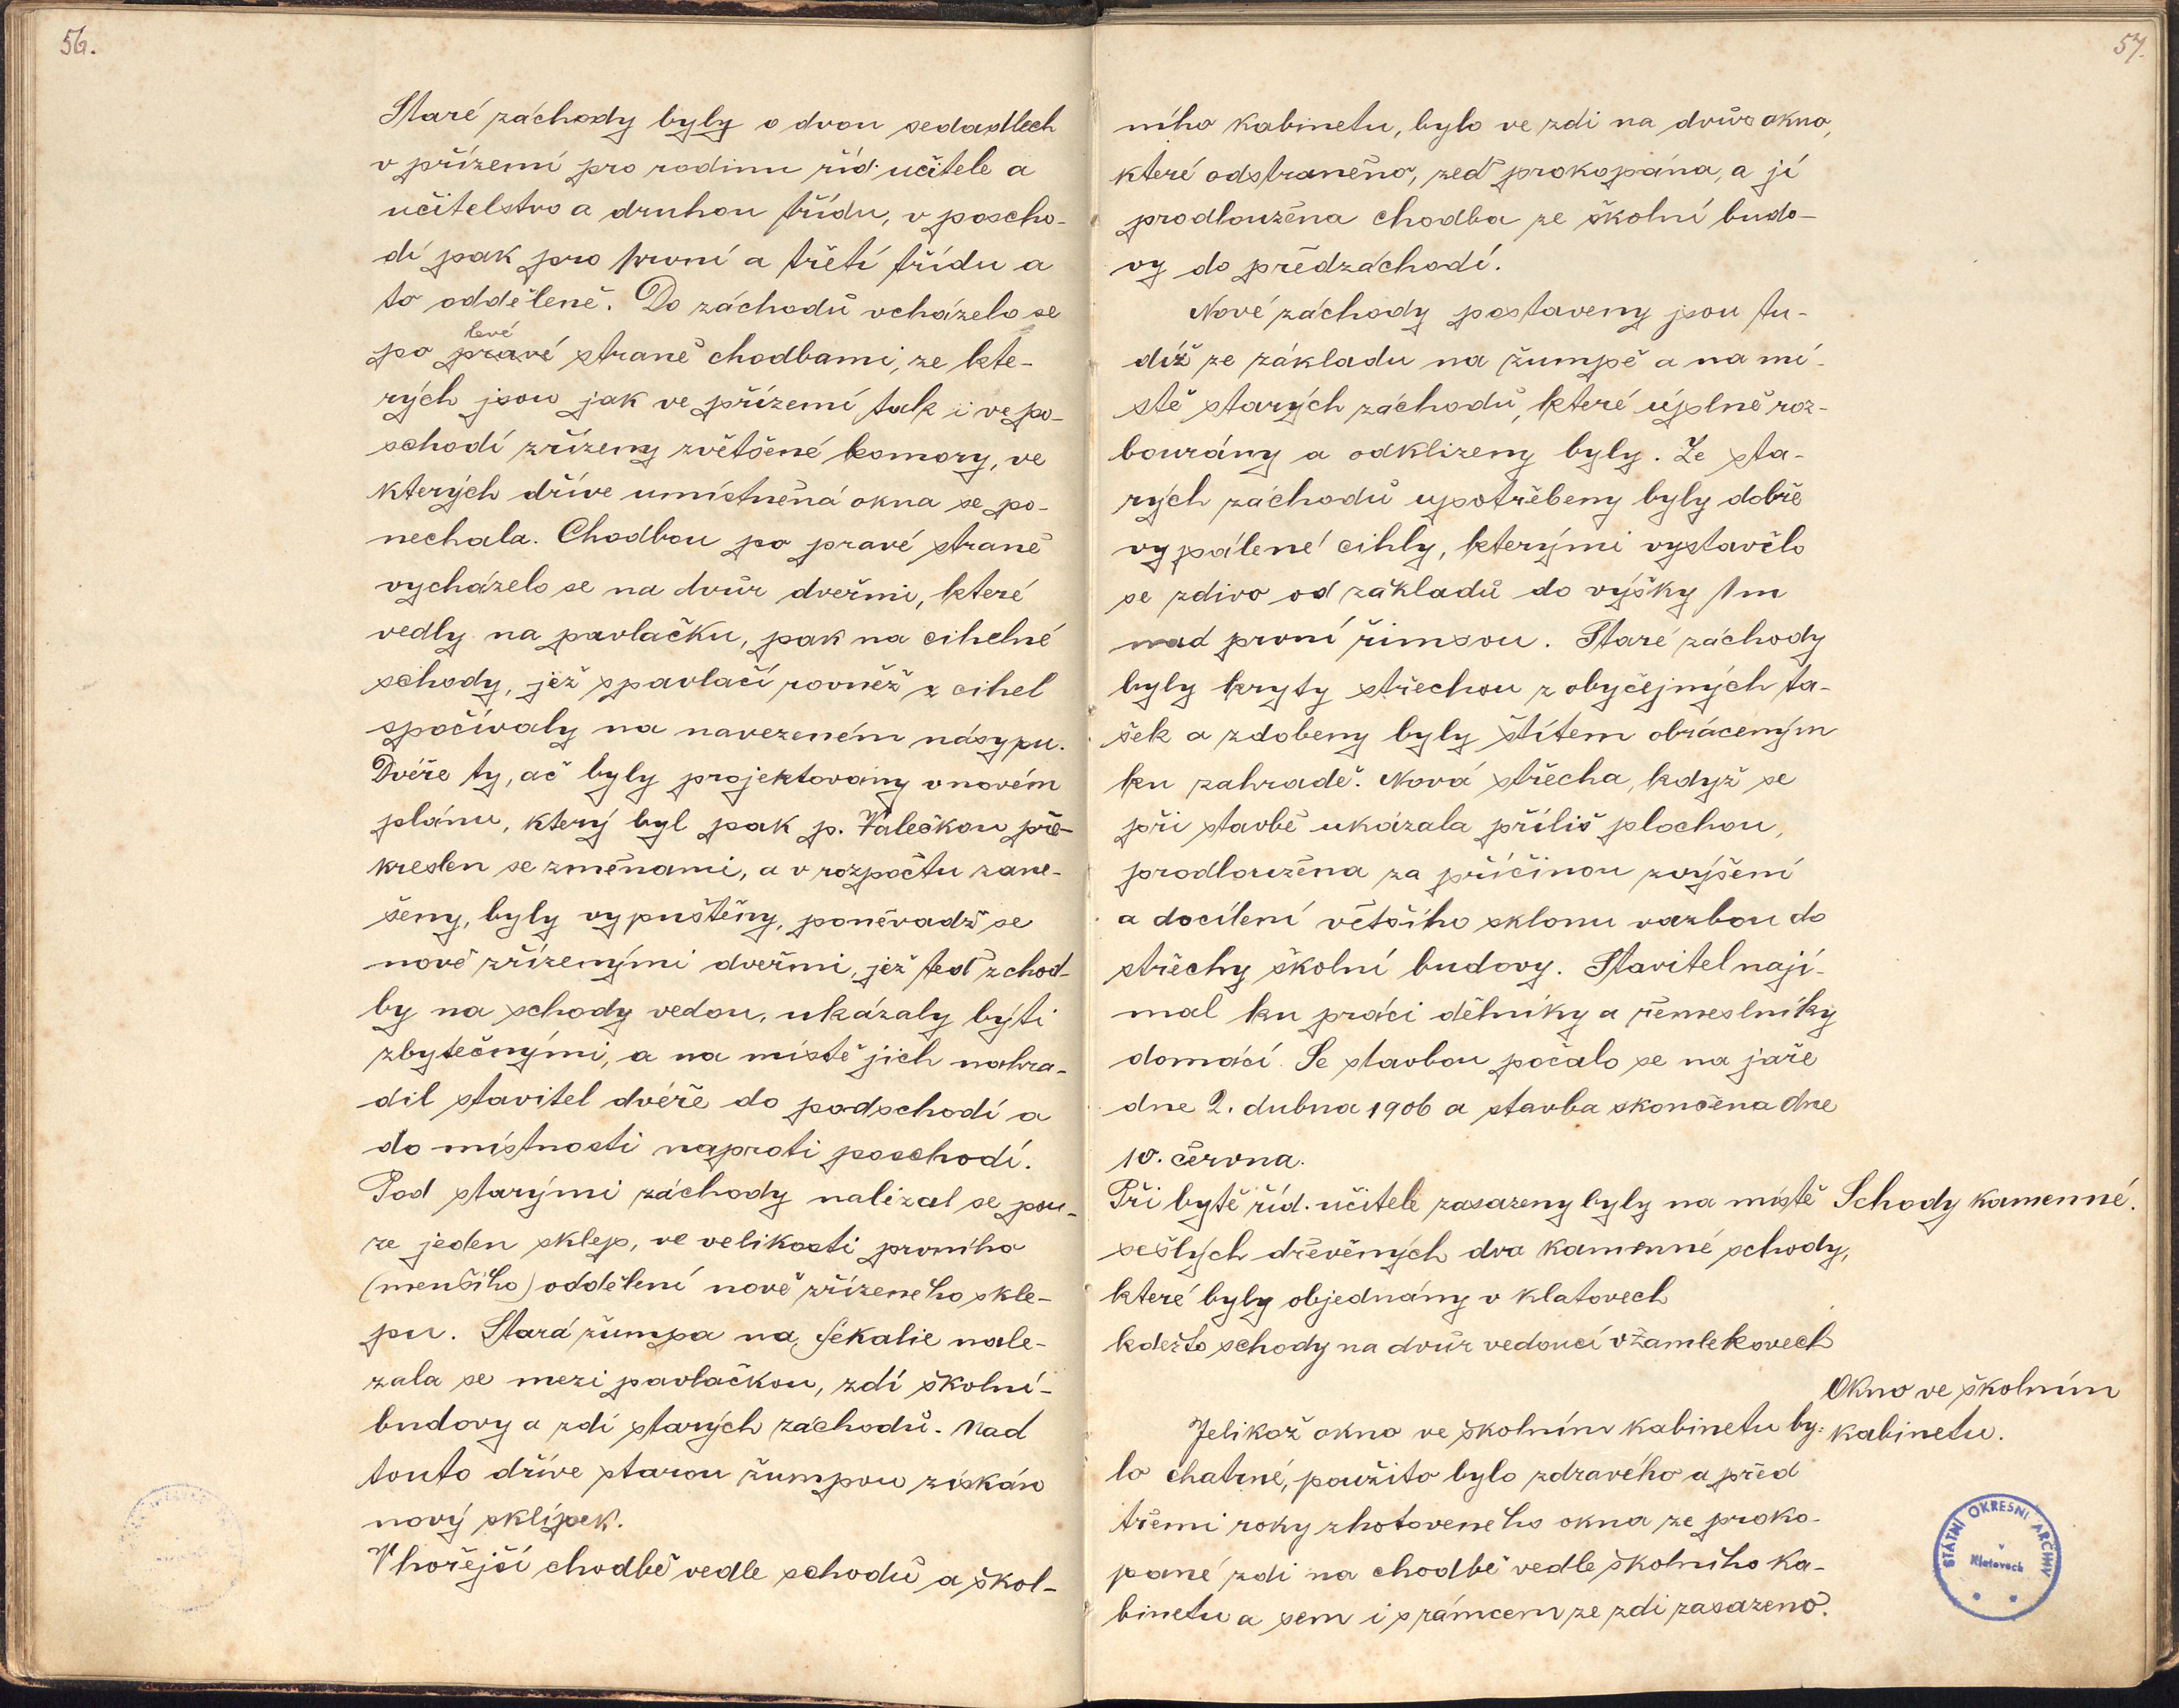 56.
Staré záchody byly o dvou sedadlech
v přízemí pro rodinu říd. učitele a
učitelstvo a druhou třídu, v poscho-
dí pak pro první a třetí třídu a
to odděleně. Do záchodů vcházelo se
levé
po pravé straně chodbami, ze kte-
rých jsou jak ve přízemí, tak i ve po-
schodí zřízeny zvětšené komory, ve
kterých dříve umístněná okna se po-
nechala. Chodbou po pravé straně
vycházelo se na dvůr dveřmi, které
vedly na pavlačku, pak na cihelné
schody, jež s pavlačí rovněž z cihel
spočívaly na navezeném násypu.
Dvéře ty, ač byly projektovány v novém
plánu, který byl pak p. Valeškou pře-
kreslen se změnami, a v rozpočtu zane-
šeny, byly vypuštěny, poněvadž se
nově zřízenými dveřmi, jež teď z chod-
by na schody vedou, ukázaly býti
zbytečnými, a na místě jich nahra-
dil stavitel dvéře do podschodí a
do místnosti naproti poschodí.
Pod starými záchody nalizal se pou-
ze jeden sklep, ve velikosti prvního
(menšího) oddělení nově zřízeného skle-
pu. Stará žumpa na fekalie nale-
zala se mezi pavlačkou, zdí školní-
budovy a zdí starých záchodů. Nad
touto dříve starou žumpou získán
nový sklípek.
V hořejší chodbě vedle schodů a škol-
57.
ního kabinetu, bylo ve zdi na dvůr okno,
které odstraněno, zeď prokopána, a jí
prodloužena chodba ze školní budo-
vy do předzáchodí.
Nové záchody postaveny jsou tu-
díž ze základu na žumpě a na mí-
stě starých záchodů, které úplně roz-
bourány a odklizeny byly. Ze sta-
rých záchodů upotřebeny byly dobře
vypálené cihly, kterými vystavělo
se zdivo od základů do výšky 1 m
nad první římsou. Staré záchody
byly kryty střechou z obyčejných ta-
šek a zdobeny byly štítem obráceným
ku zahradě. Nová střecha, když se
při stavbě ukázala příliš plochou,
prodloužena za příčinou zvýšení
a docílení většího sklonu vazbou do
střechy školní budovy. Stavitel nají-
mal ku práci dělníky a řemeslníky
domácí. Se stavbou počalo se na jaře
dne 2. dubna 1906 a stavba skončena dne
10. června.
Při bytě říd. učitele zasazeny byly na místě
Schody kamenné.
sešlých dřevěných dva kamenné schody,
které byly objednány v Klatovech
kdežto schody na dvůr vedoucí v Žamlekovech
Okno ve školním
kabinetu.
Jelikož okno ve školním kabinetu by:
lo chatrné, použito bylo zdravého a před
třemi roky zhotoveného okna ze proko-
pané zdi na chodbě vedle školního ka-
binetu a sem i s rámcem ze zdi zasazeno.
STÁTNÍ OKRESNÍ ARCHIV
v
Klatovech